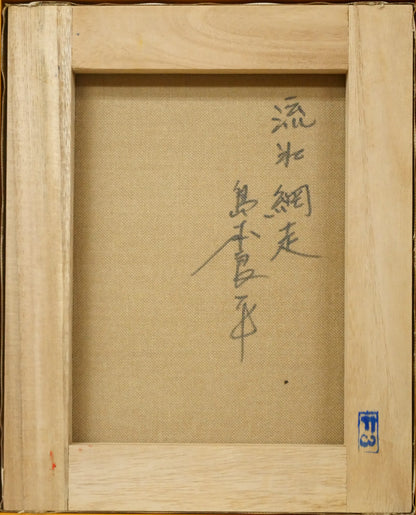 流氷 網走
島本良平
F3